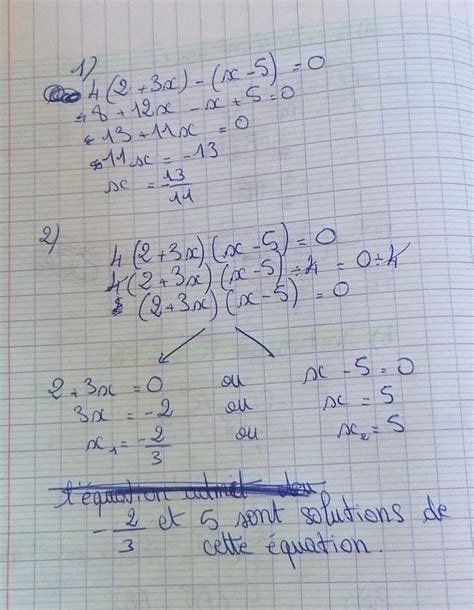 1)
4(2+3x)-(x-5)=0
8+12x-x+5=0
13+11x=0
11x=-13
x=-13/11
2)
4(2+3x)(x-5)=0
4(2+3x)(x-5)÷4=0÷4
(2+3x)(x-5)=0
2+3x=0 ou x-5=0
3x=-2 ou x=5
x₁=-2/3 ou x₂=5
l'équation admet
-2/3 et 5 sont solutions de
cette équation.